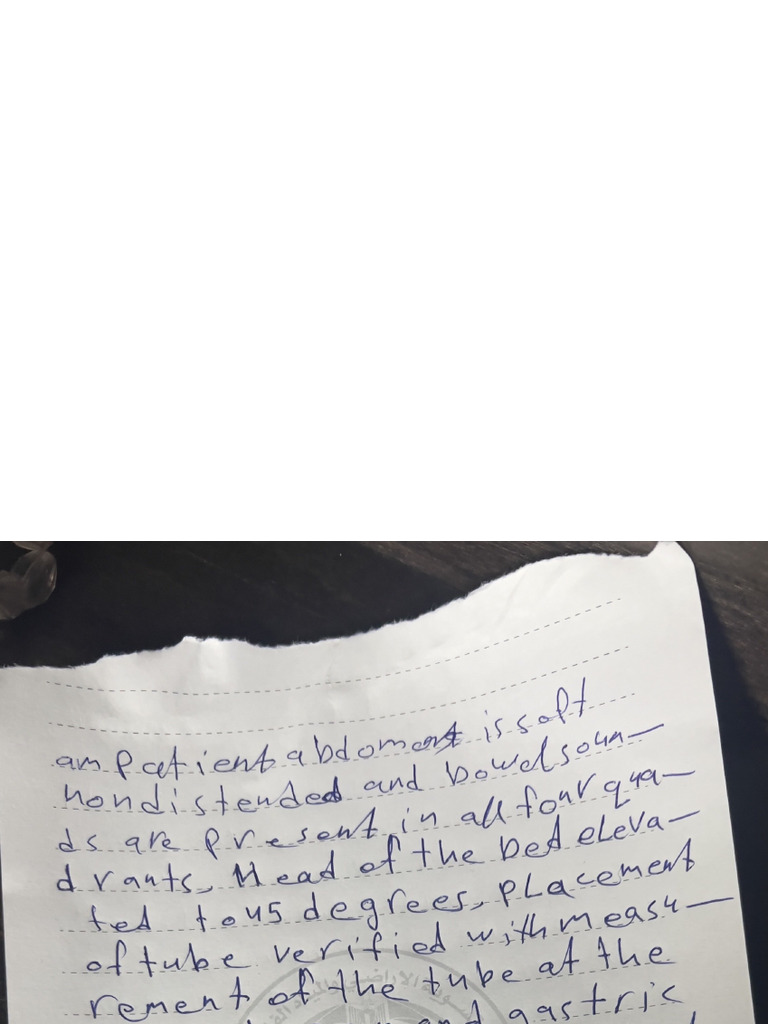 am patient abdoment is soft
nondistended and bowel soun-
ds are present in all four qua-
drants, Head of the bed eleva-
ted to 45 degrees, placement
of tube verified with measu-
rement of the tube at the
and gastric